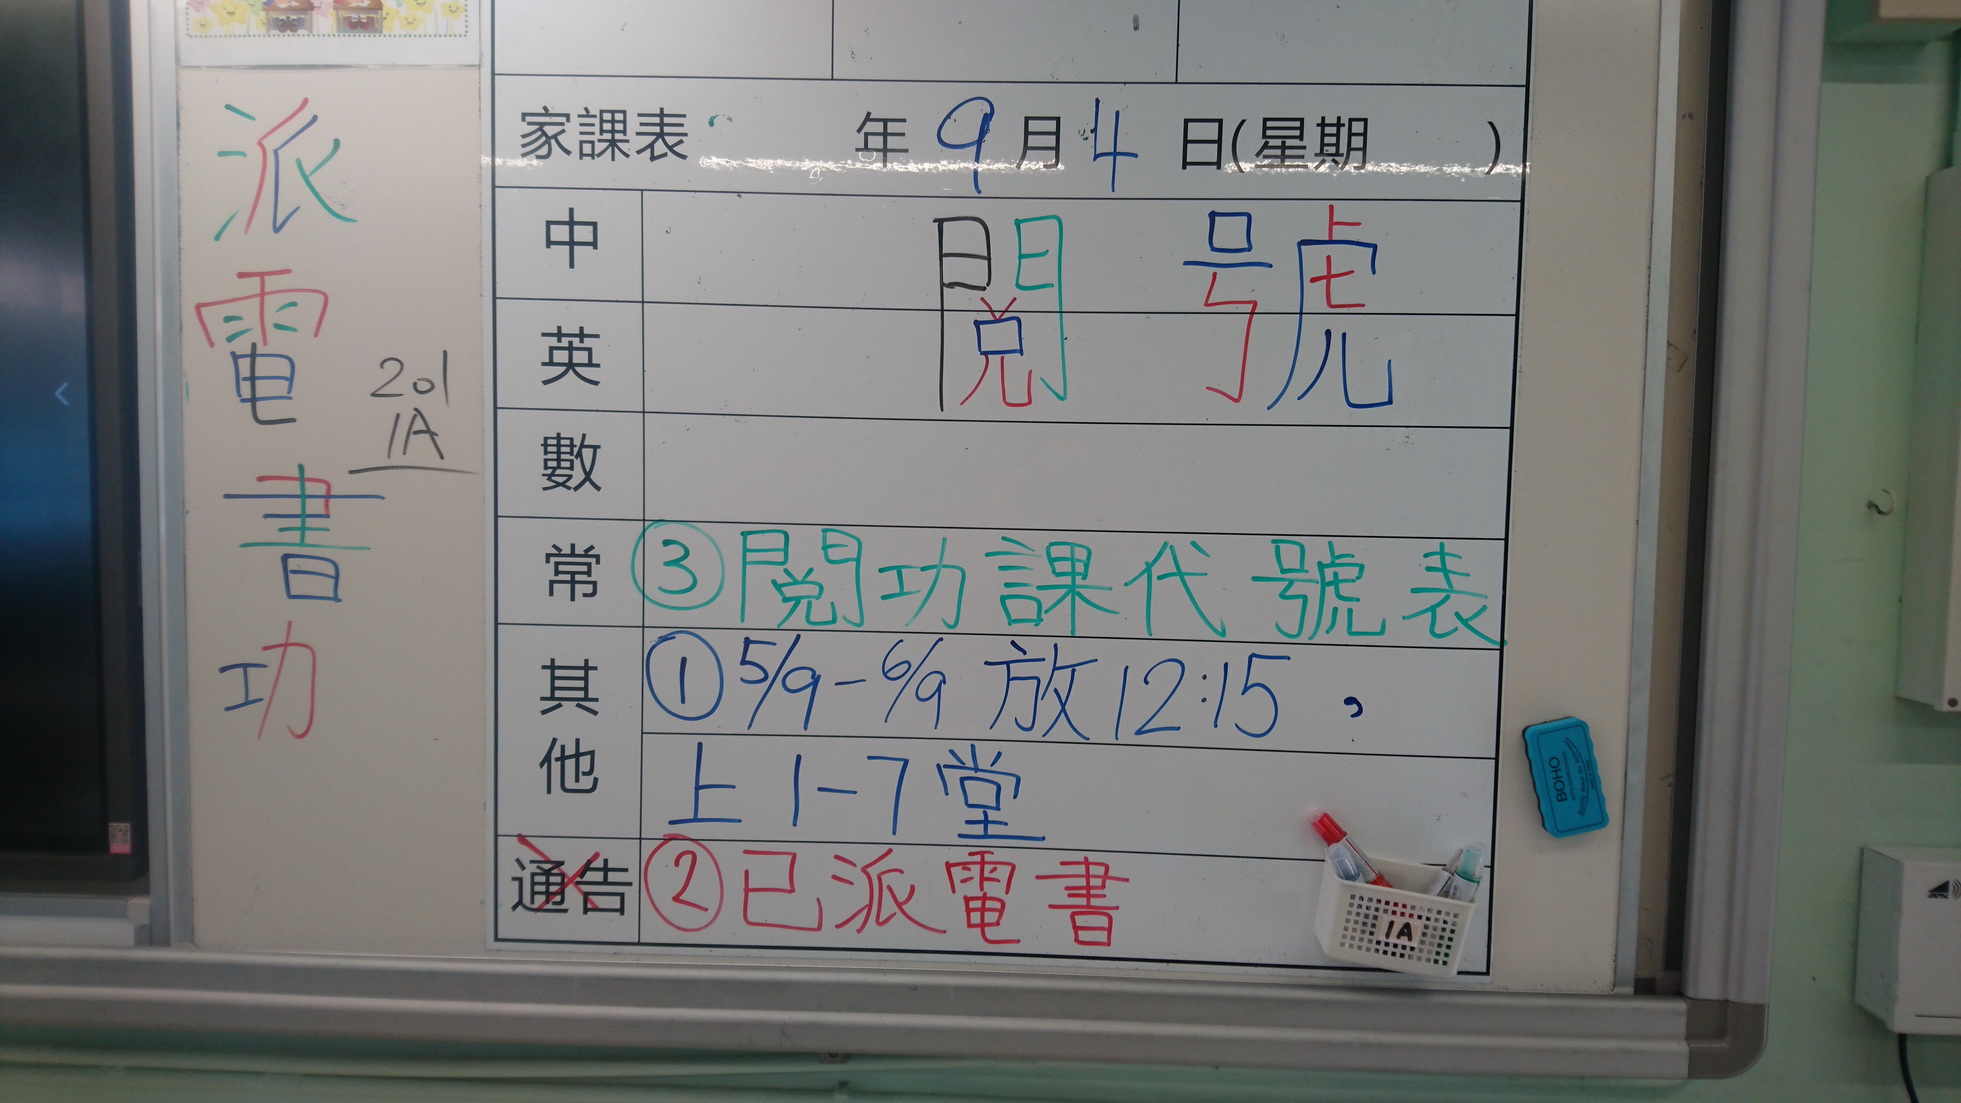 派
電
書
功
201
1A
家課表 年9月4日(星期 )
中 閱 號
英
數
常 ③閱功課代號表
其他 ①5/9-6/9 放12:15，
上1-7堂
通告 ②已派電書
BOHO
1A